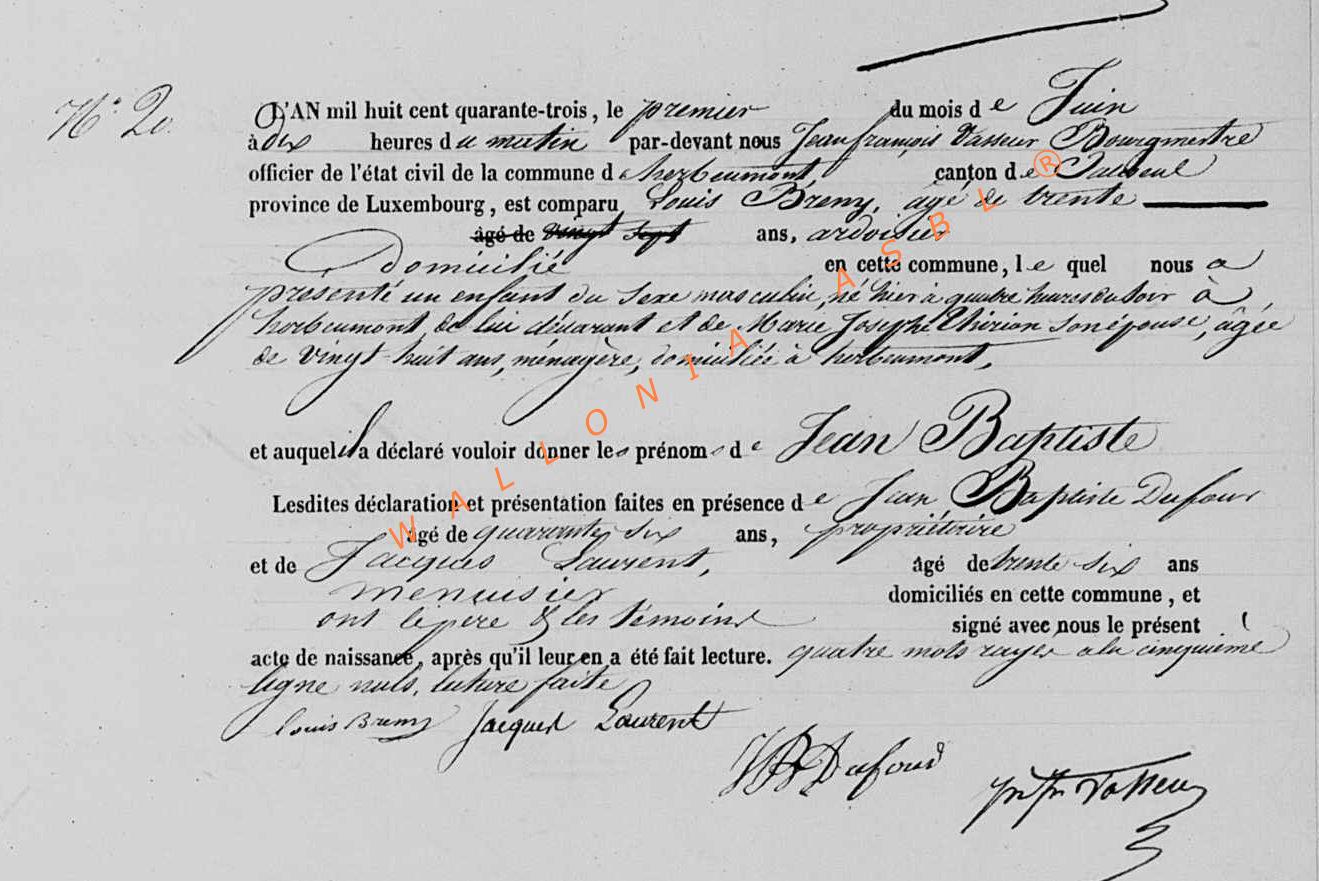 N° 20.
L'AN mil huit cent quarante-trois, le premier du mois de Juin
à dix heures du matin par-devant nous Jean françois Vasseur Bourgmestre
officier de l'état civil de la commune d'herbeumont, canton de Paliseul
province de Luxembourg, est comparu Louis Bremy, âgé de trente
âgé de vingt sept ans, ardoisier
Domicilié en cette commune, lequel nous a
présenté un enfant du sexe masculin, né hier à quatre heures du soir à
herbeumont, de lui déclarant et de Marie Josephe Thirion son épouse, âgée
de vingt-huit ans, ménagère, domiciliée à herbeumont,
et auquel il a déclaré vouloir donner les prénoms de Jean Baptiste
Lesdites déclaration et présentation faites en présence de Jean Baptiste Dufour
âgé de quarante six ans, propriétaire
et de Jacques Laurent, âgé de trente six ans
menuisier domiciliés en cette commune, et
ont le père & les témoins signé avec nous le présent
acte de naissance, après qu'il leur en a été fait lecture. quatre mots rayés à la cinquième
ligne nuls, lecture faite
Louis Bremy Jacques Laurent
JB Dufour
Jn fr Vasseur
WALLONIA ASBL ®